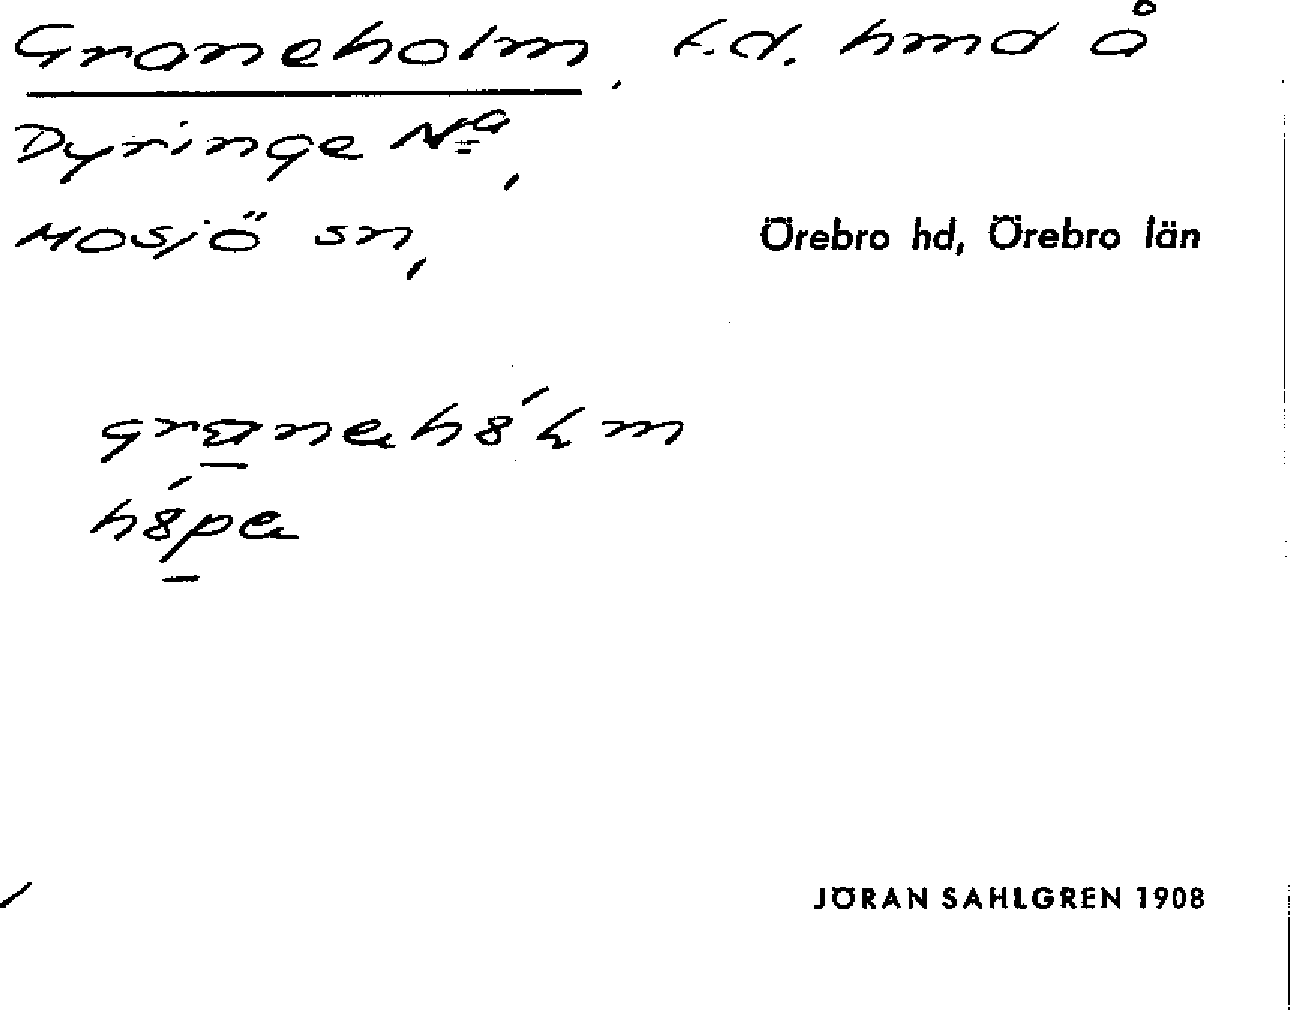 Graneholm, f.d. hmd å
Dyringe Na,
Mosjö sn,
Örebro hd, Örebro län
JÖRAN SAHLGREN 1908